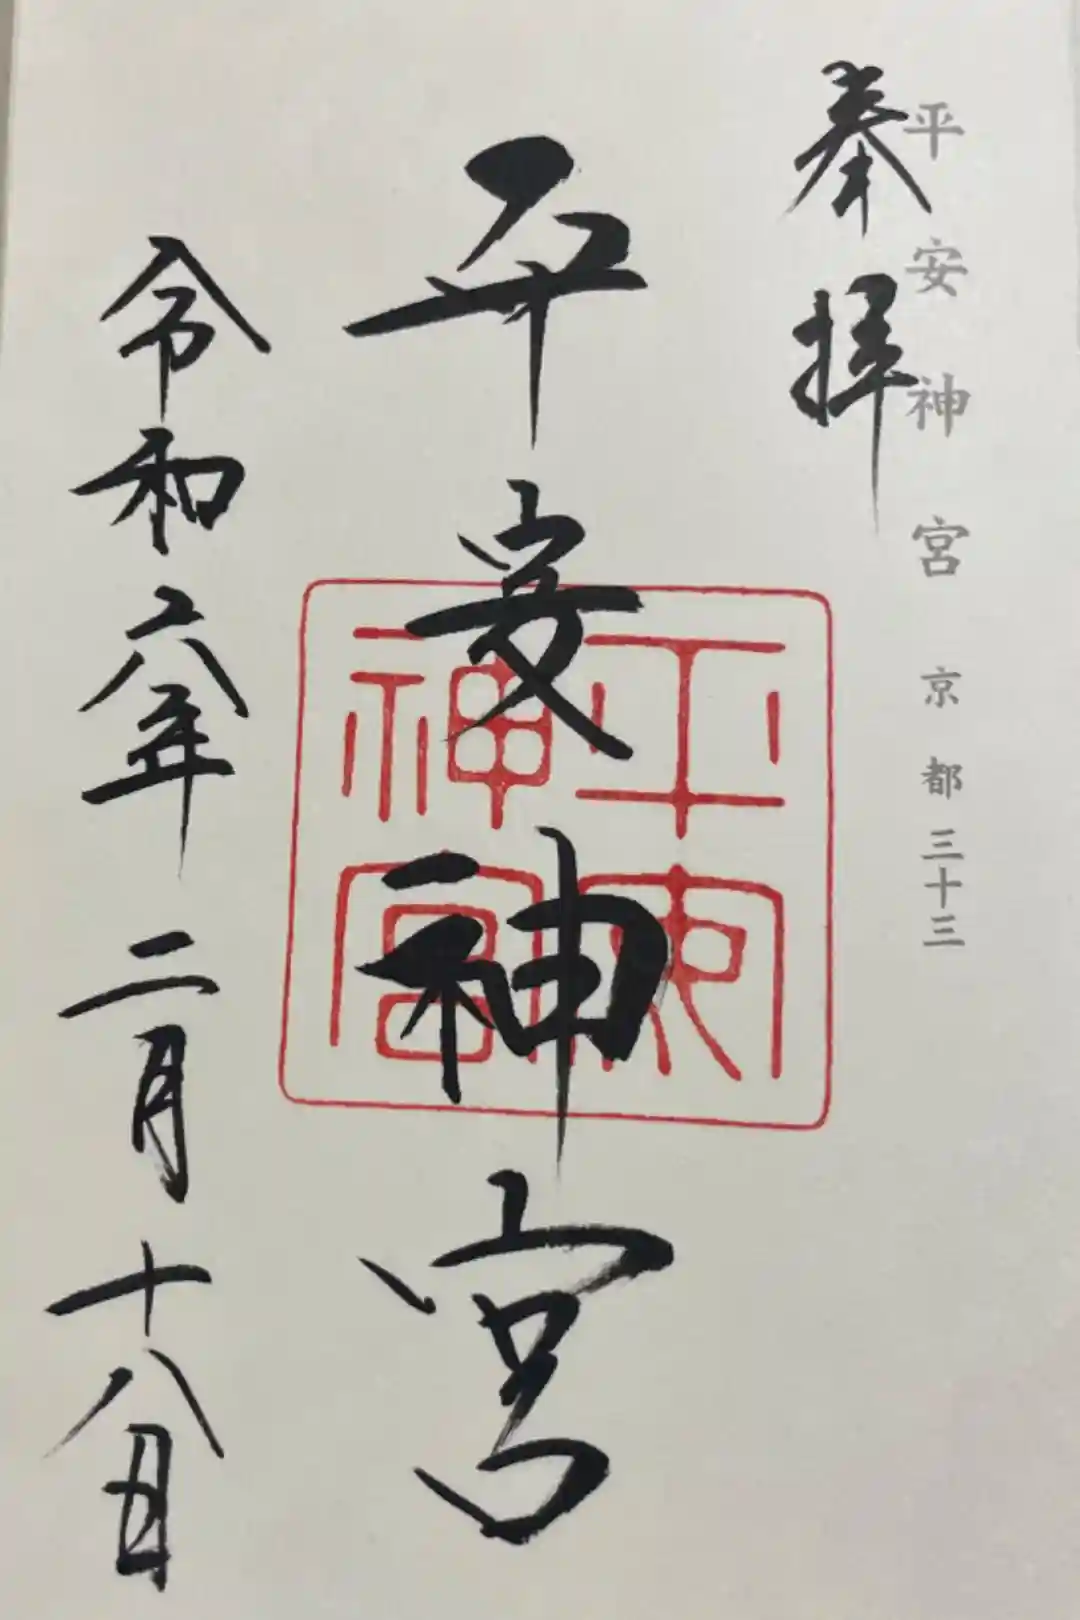 平安神宮 京都三十三
奉拝
平安神宮
平安神宮
令和六年二月十八日